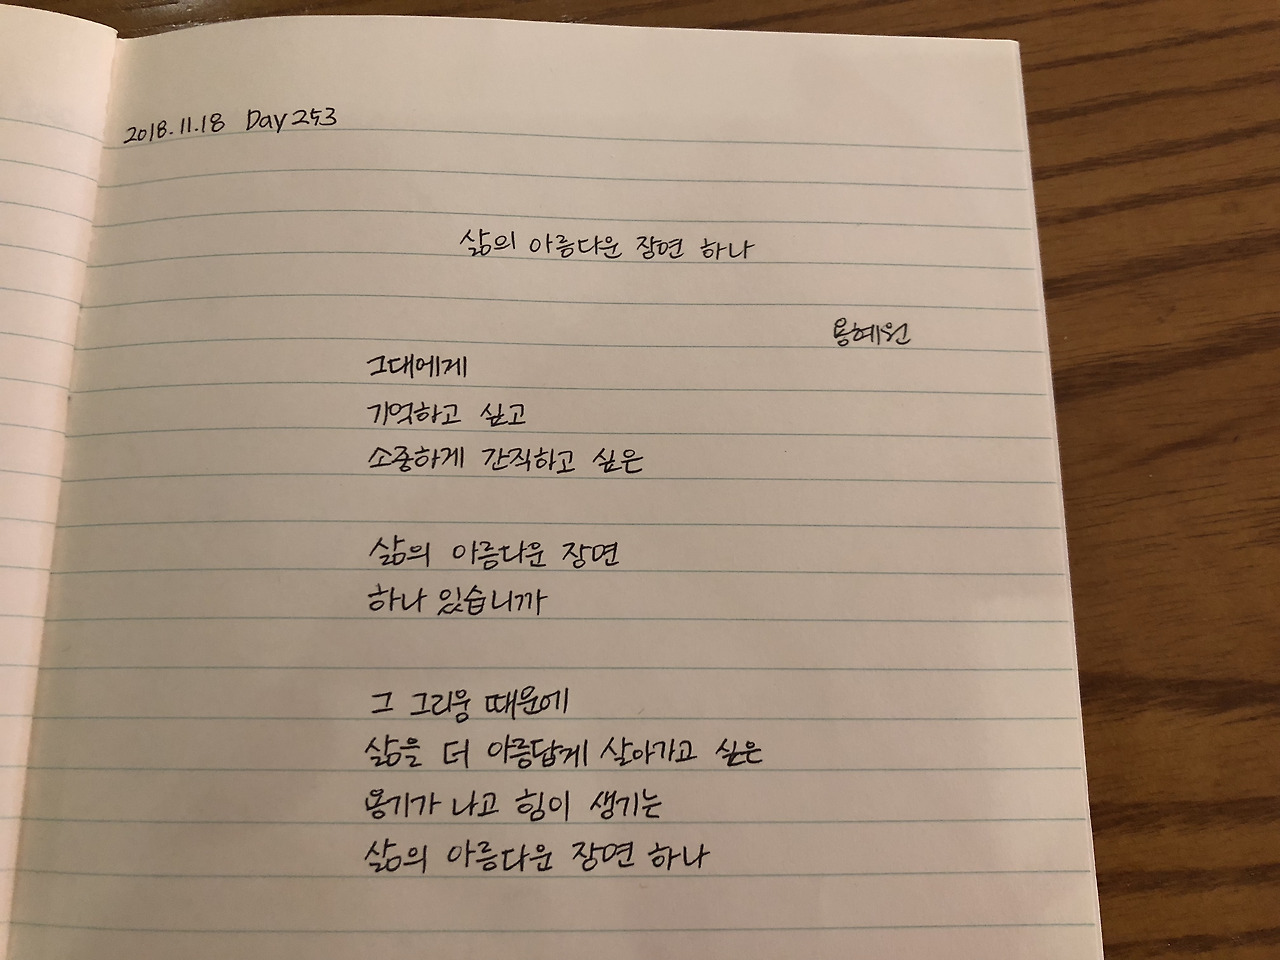 2018.11.18 Day 253
삶의 아름다운 장면 하나
용혜원
그대에게
기억하고 싶고
소중하게 간직하고 싶은
삶의 아름다운 장면
하나 있습니까
그 그리움 때문에
삶을 더 아름답게 살아가고 싶은
용기가 나고 힘이 생기는
삶의 아름다운 장면 하나